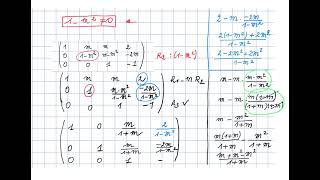 1-m²≠0
1 m m 2
0 1-m² m-m² -2m
0 0 1 -1
R₂ : (1-m²)
1 m m 2
0 1 m-m²/1-m² -2m/1-m²
0 0 1 -1
R₁-m R₂
R₃ ✓
1 0 m/1+m 2/1-m²
0 1 m/1+m -2m/1-m²
0 0 1 -
2-m · -2m/1-m²
2(1-m²)+2m²/1-m²
2-2m²+2m²/1-m²
m-m · m-m²/1-m²
m-m · m(1-m)/(1-m)(1+m)
m - m²/1+m
m(1+m)/1+m - m²/1+m
m+m²-m²/1+m